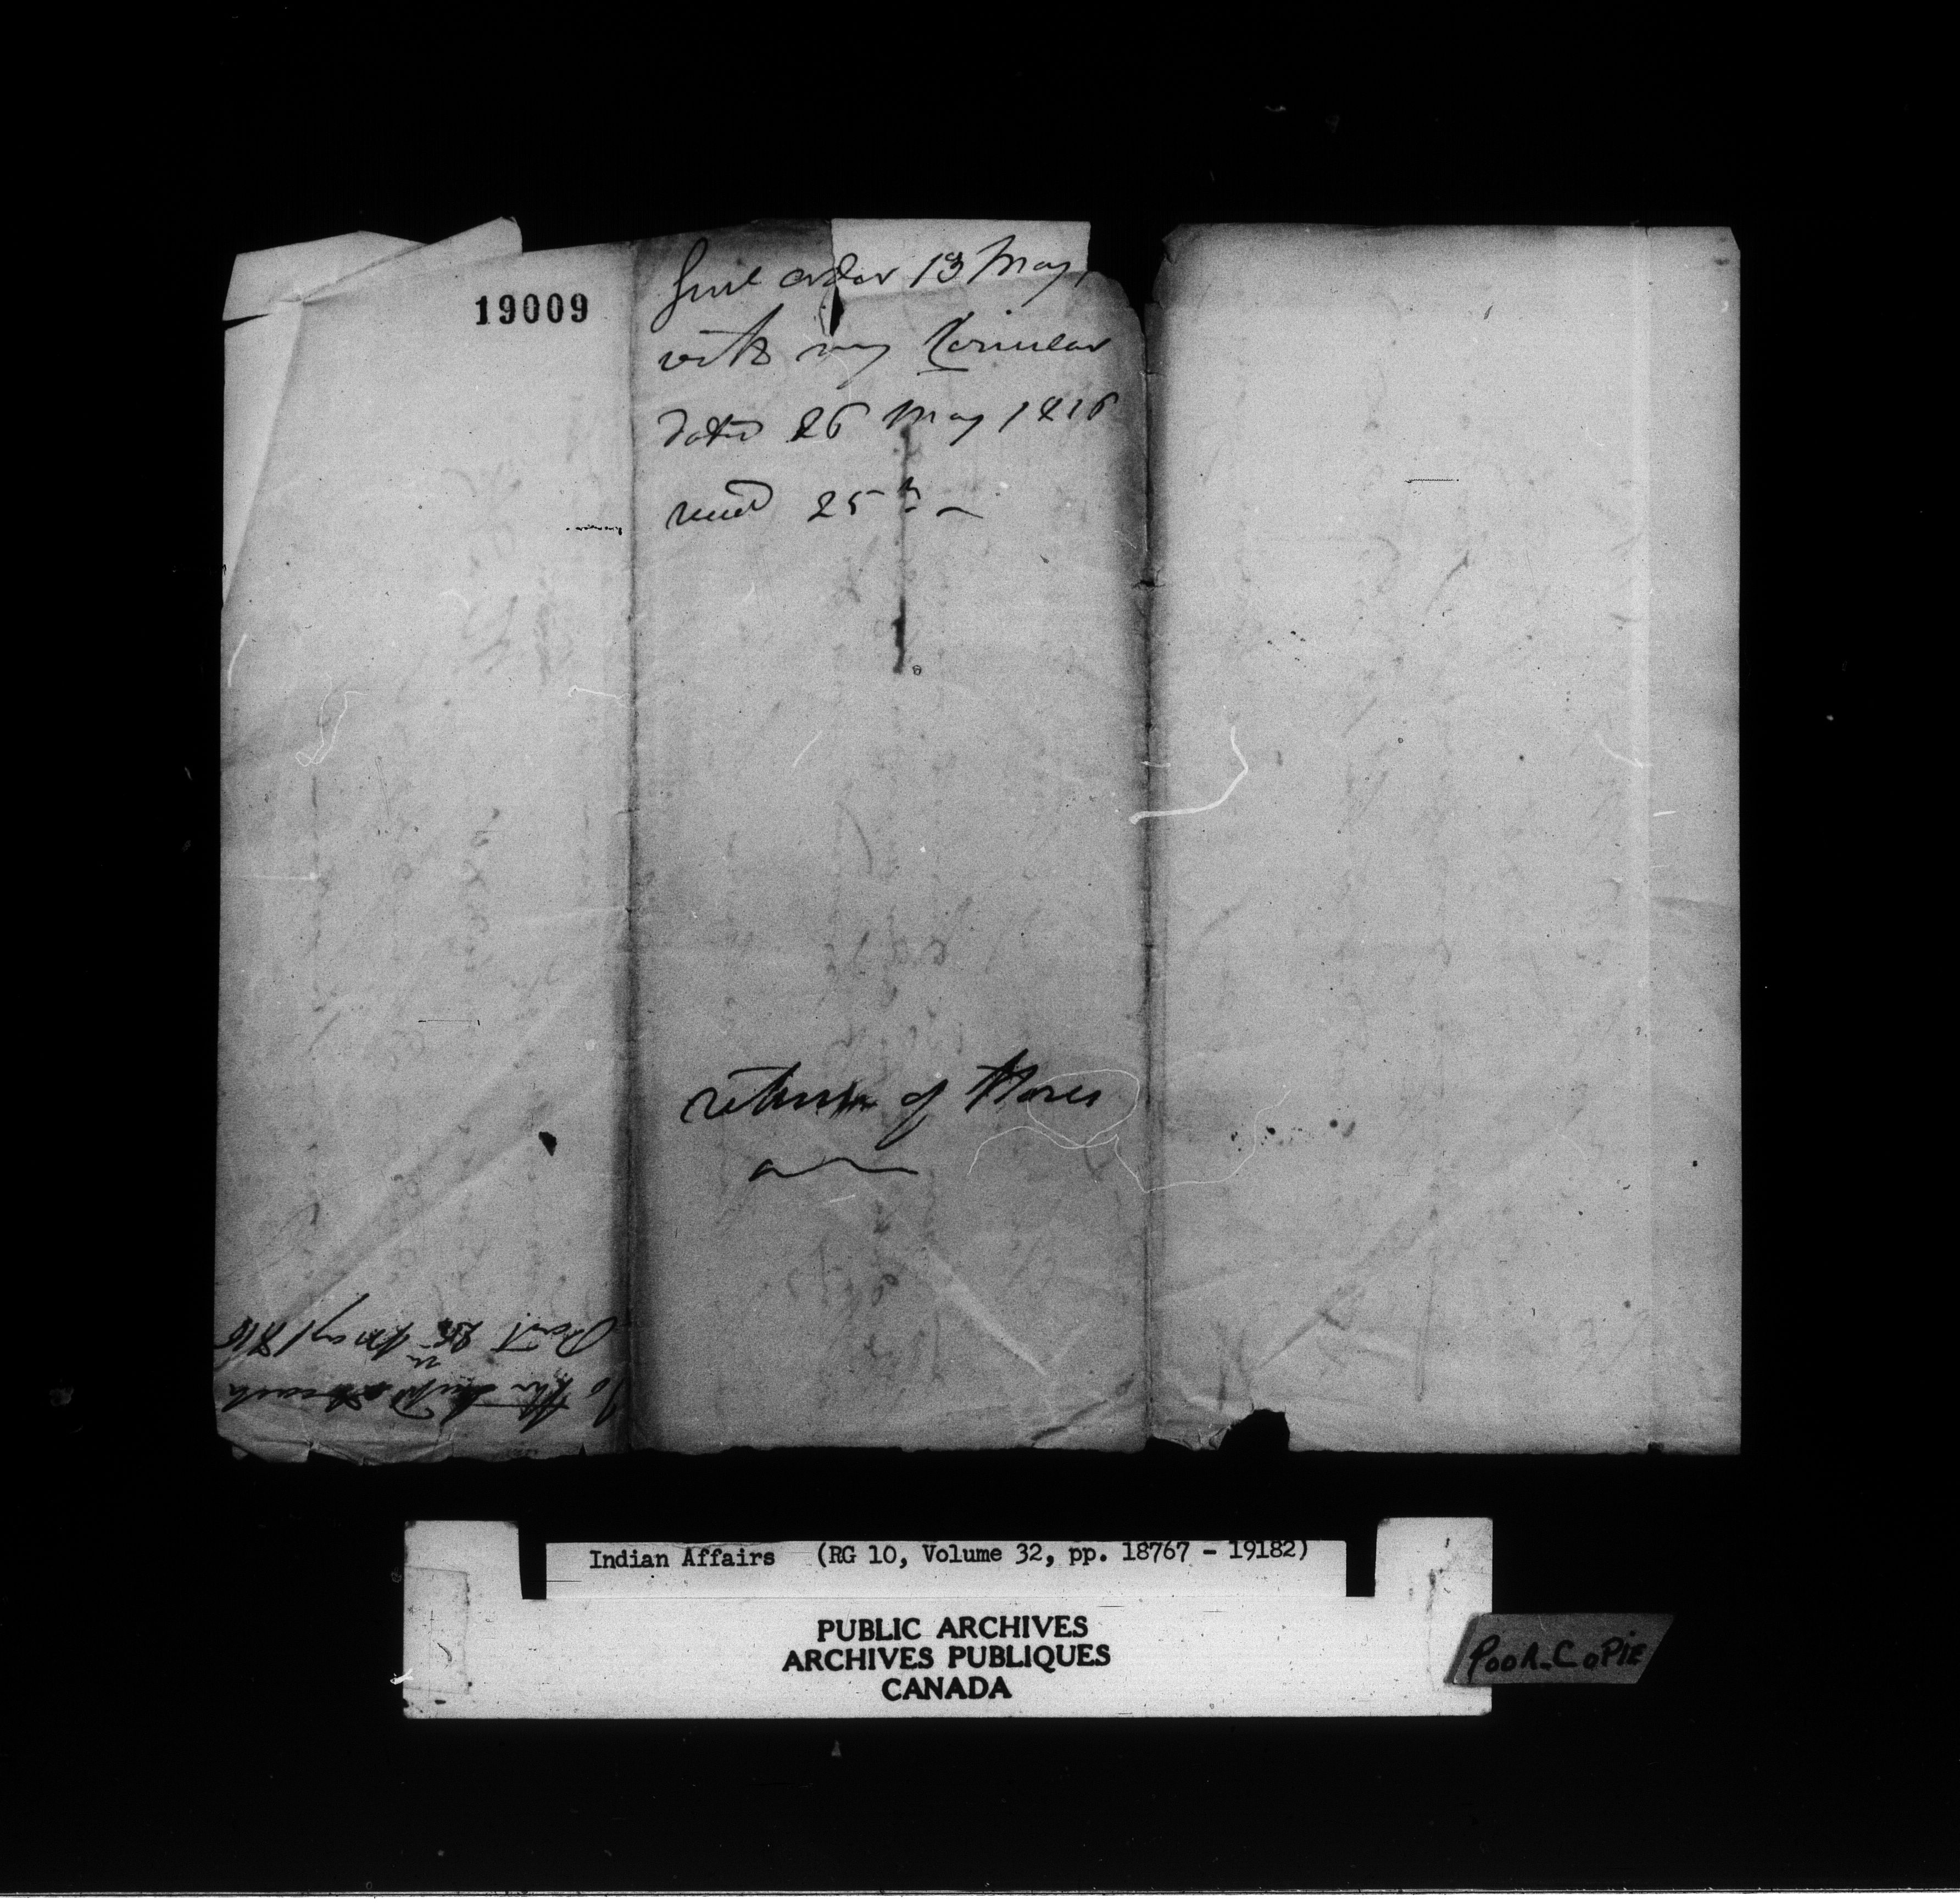 19009
Genl order 13 May
with my Circular
dated 26 May 1816
recd 25th
return of Stores
To the
Dert 25th May 1816
Indian Affairs (RG 10, Volume 32, pp. 18767 - 19182)
PUBLIC ARCHIVES
ARCHIVES PUBLIQUES
CANADA
POOR COPIE